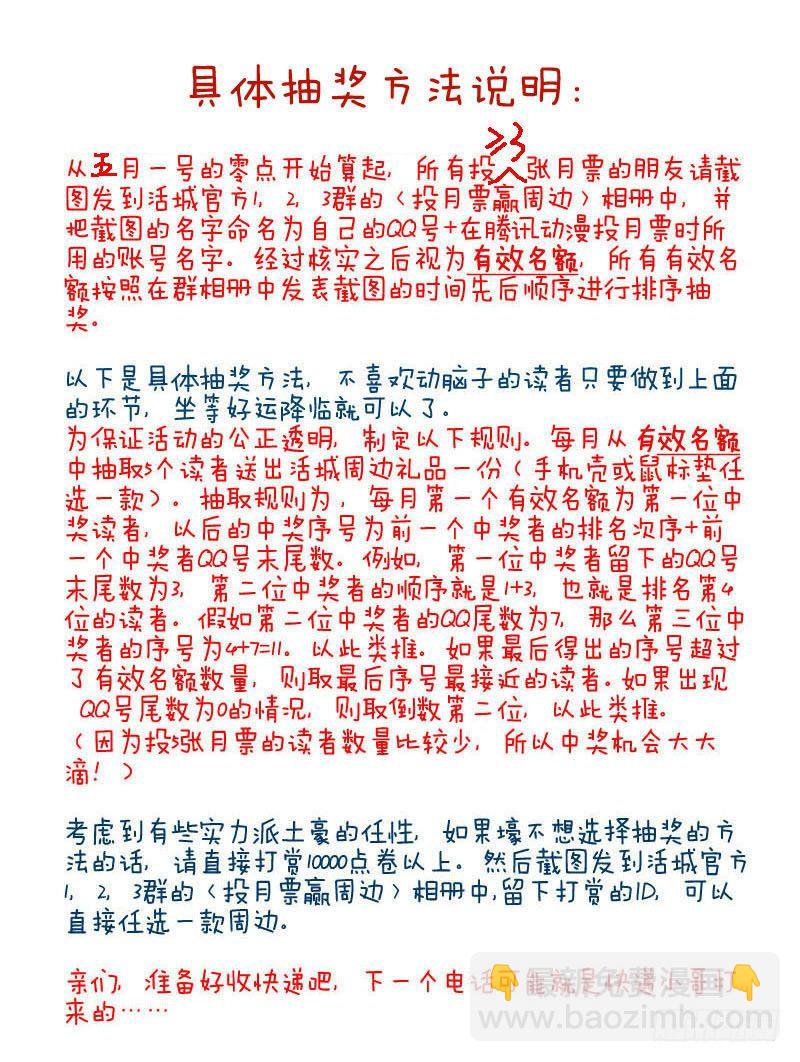 具体抽奖方法说明：
从五月一号的零点开始算起，所有投≥3张月票的朋友请截
图发到活城官方1，2，3群的（投月票赢周边）相册中，并
把截图的名字命名为自己的QQ号+在腾讯动漫投月票时所
用的账号名字。经过核实之后视为有效名额，所有有效名
额按照在群相册中发表截图的时间先后顺序进行排序抽
奖。
以下是具体抽奖方法，不喜欢动脑子的读者只要做到上面
的环节，坐等好运降临就可以了。
为保证活动的公正透明，制定以下规则。每月从有效名额
中抽取5个读者送出活城周边礼品一份（手机壳或鼠标垫任
选一款）。抽取规则为，每月第一个有效名额为第一位中
奖读者，以后的中奖序号为前一个中奖者的排名次序+前
一个中奖者QQ号末尾数。例如，第一位中奖者留下的QQ号
末尾数为3，第二位中奖者的顺序就是1+3，也就是排名第4
位的读者。假如第二位中奖者的QQ尾数为7，那么第三位中
奖者的序号为4+7=11。以此类推。如果最后得出的序号超过
了有效名额数量，则取最后序号最接近的读者。如果出现
QQ号尾数为0的情况，则取倒数第二位，以此类推。
（因为投5张月票的读者数量比较少，所以中奖机会大大
滴！）
考虑到有些实力派土豪的任性，如果壕不想选择抽奖的方
法的话，请直接打赏10000点卷以上。然后截图发到活城官方
1，2，3群的（投月票赢周边）相册中，留下打赏的ID，可以
直接任选一款周边。
亲们，准备好收快递吧，下一个电话可能就是快递小哥打
来的……
👇最新免费漫画👇
www.baozimh.com